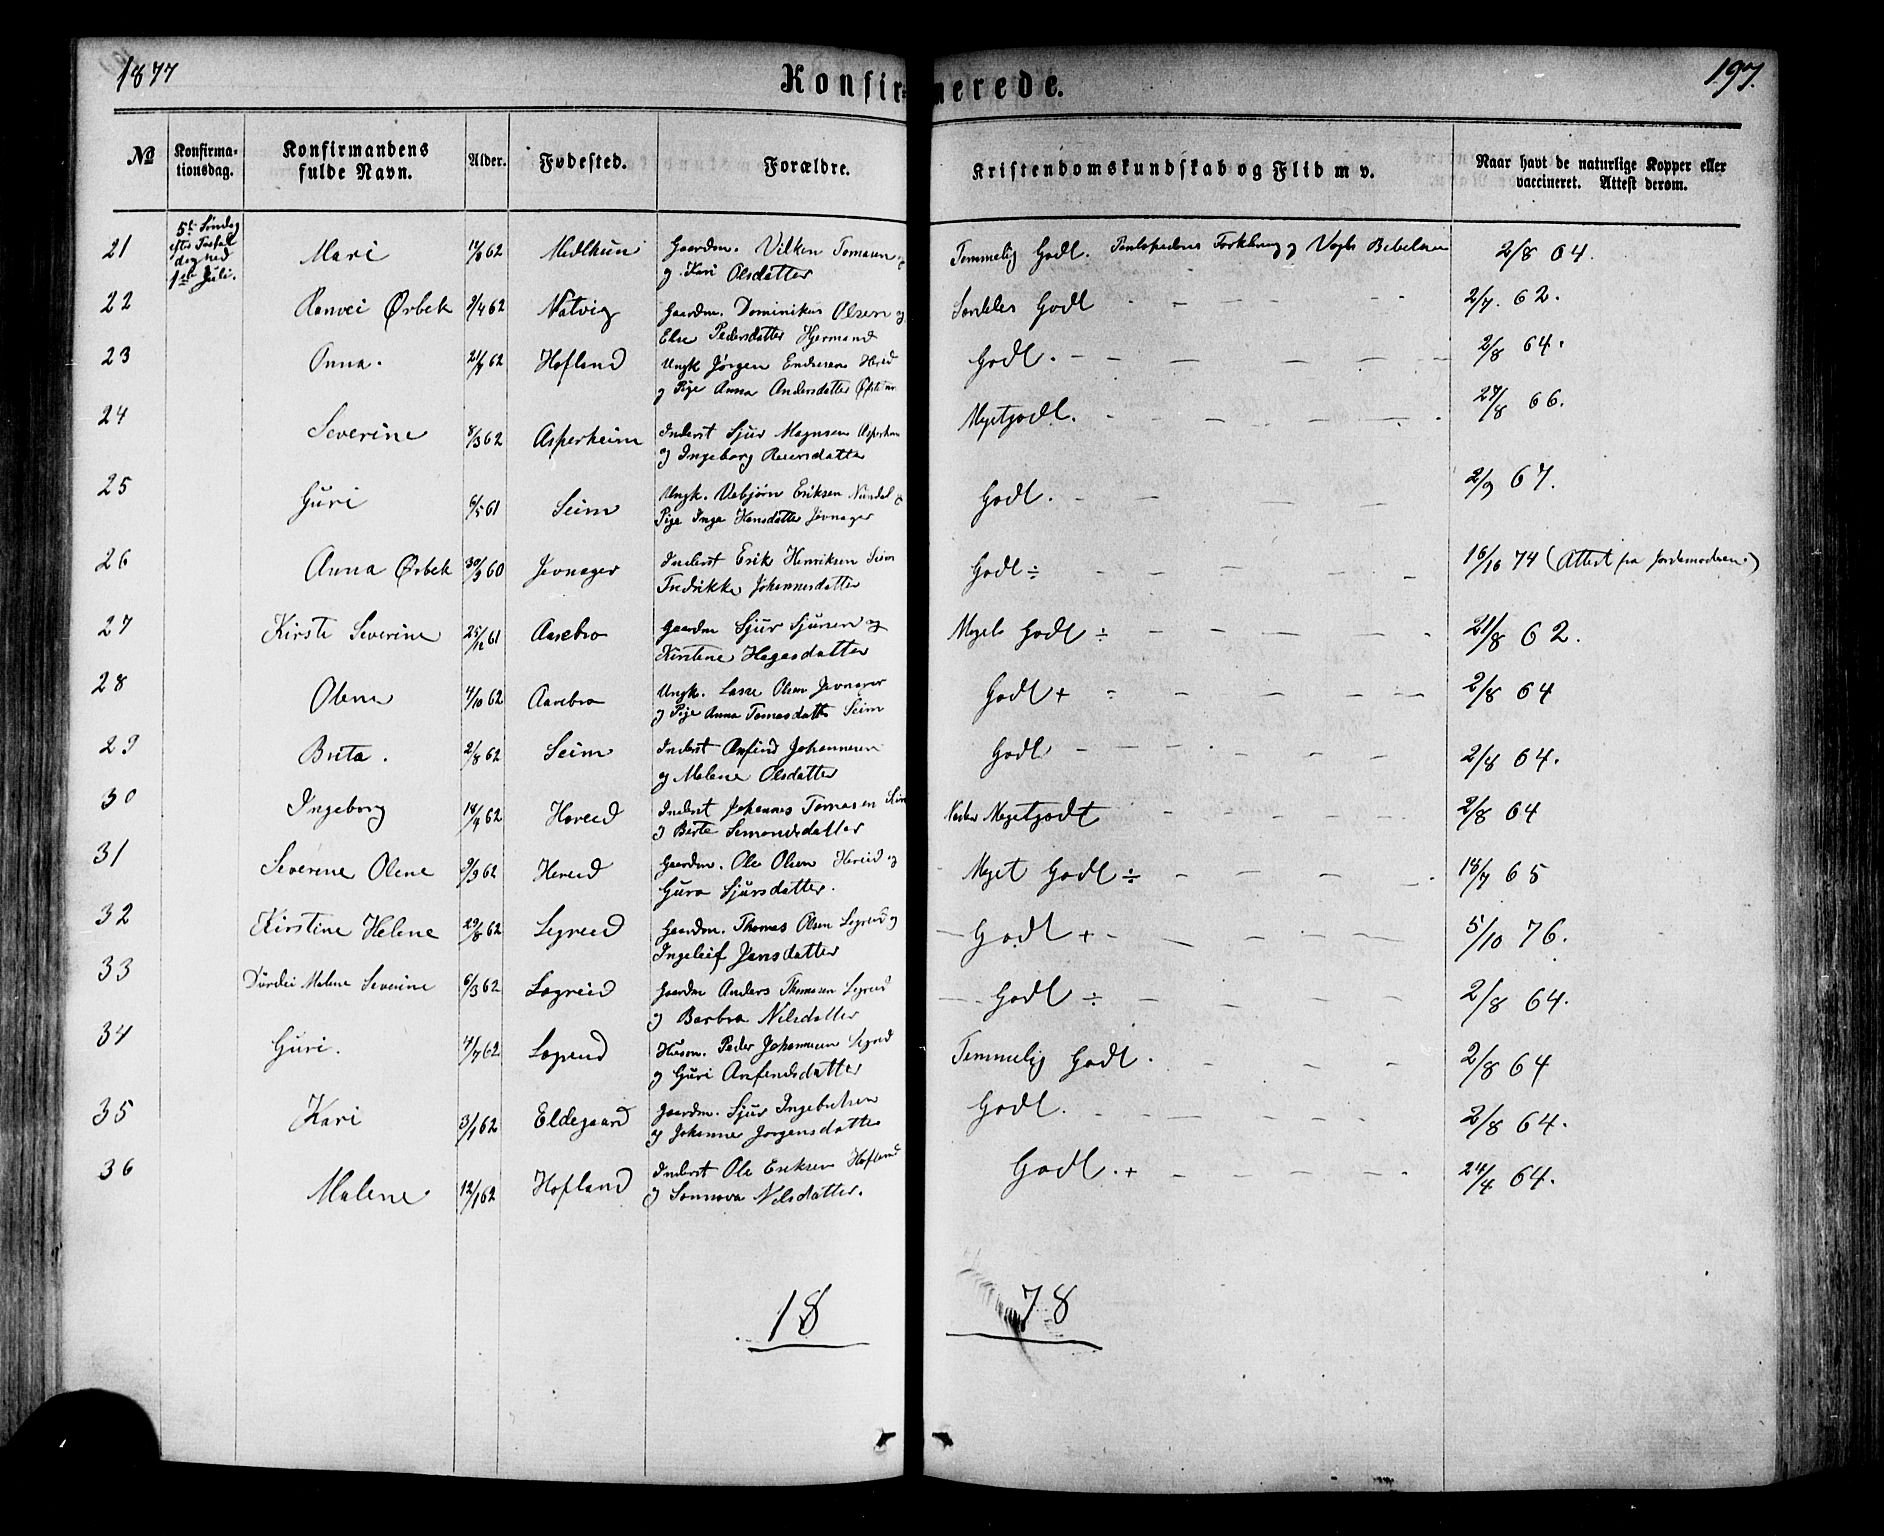 1877
Konfirmerede.
197.
No
Konfirma-
tionsdag.
Konfirmandens
fulde Navn.
Alder.
Fødested.
Forældre.
Kristendomskundskab og Flid m v.
Naar havt de naturlige Kopper eller
vaccineret. Attest derom.
5te Søndag
1ste Juli.
21 Mari 62 Gaardm. Vilken Tomasen
og Kari Olsdatter
Temmelig Godt. Forklaring og Vogts 2/8 64.
22 Ranvei Ørbek 2/4 62 Natvig Gaardm. Dominikus Olsen og
Else Pedersdatter
Særdeles Godt 2/7. 62.
23 Anna. 62 Hofland Ungk Jørgen Endresen
og Pige Anna Andersdatter
Godt. 2/8 64.
24 Severine 8/3 62 Asperheim Inderst Sjur Magnsen
og Ingeborg
Megetgodt. 27/8 66.
25 Guri 6/5 61 Seim Ungk. Vebjørn Eriksen Nundal
Pige Inga Hansdatter Jevnager
Godt. 2/9 67.
26 Anna Ørbek 30/3 60 Jevnager Inderst Erik Henriksen Seim
Fredrikke Johannesdatter
Godt ÷ 16/10 74 (Attest fra Jordemoderen.)
27 Kirste Severine 25/12 61 Aarebro Gaardm Sjur Sjursen og
Kirstene
Meget Godt ÷ 21/8 62.
28 Olena 4/10 62 Aarebro Ungk. Lasse Olsen Jevnager
og Pige Anna Tomasdatter Seim
Godt + 2/8 64
29 Brita. 2/8 62 Seim Inderst Anfind Johannesen
og Malene Olsdatter
Godt 2/8 64.
30 Ingeborg 62 Hereid Inderst Johannes Tomasen
og Berte Semondsdatter
Megetgodt 2/8 64
31 Severine Olene 9/9 62 Hereid Gaardm. Ole Olsen Hereid og
Guro Sjursdatter.
Meget Godt ÷ 18/7 65
32 Kirstine Helene 29/8 62 Legreid Gaardm. Thomas Olsen Legreid og
Ingeleif Jensdatter
Godt + 5/10 76.
33 Malene Severine 6/3 62 Lægreid Gaardm Anders Thomasen Legreid
og Barbra Nilsdatter
Godt ÷ 2/8 64.
34 Guri. 4/7 62 Husm. Peder Johannesen
og Guri Anfendsdatter
Temmelig Godt. 2/8 64
35 Kari 3/1 62 Eldegaard Gaardm. Sjur
og Johanne Jørgensdatter
Godt. 2/8 64.
36 Malene 12/1 62 Hofland Inderst Ole Eriksen Hofland
og Sonnova Nilsdatter.
Godt. + 24/4 64.
18
78